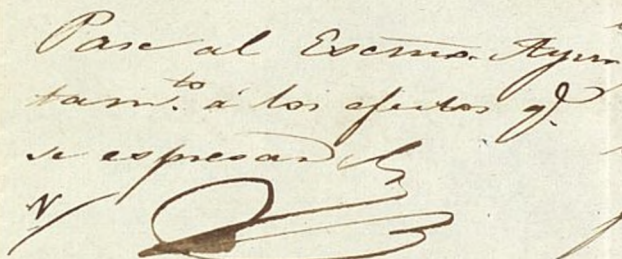 Pase al Escmo. Ayun
tam.to á los efectos q.e
se espresan